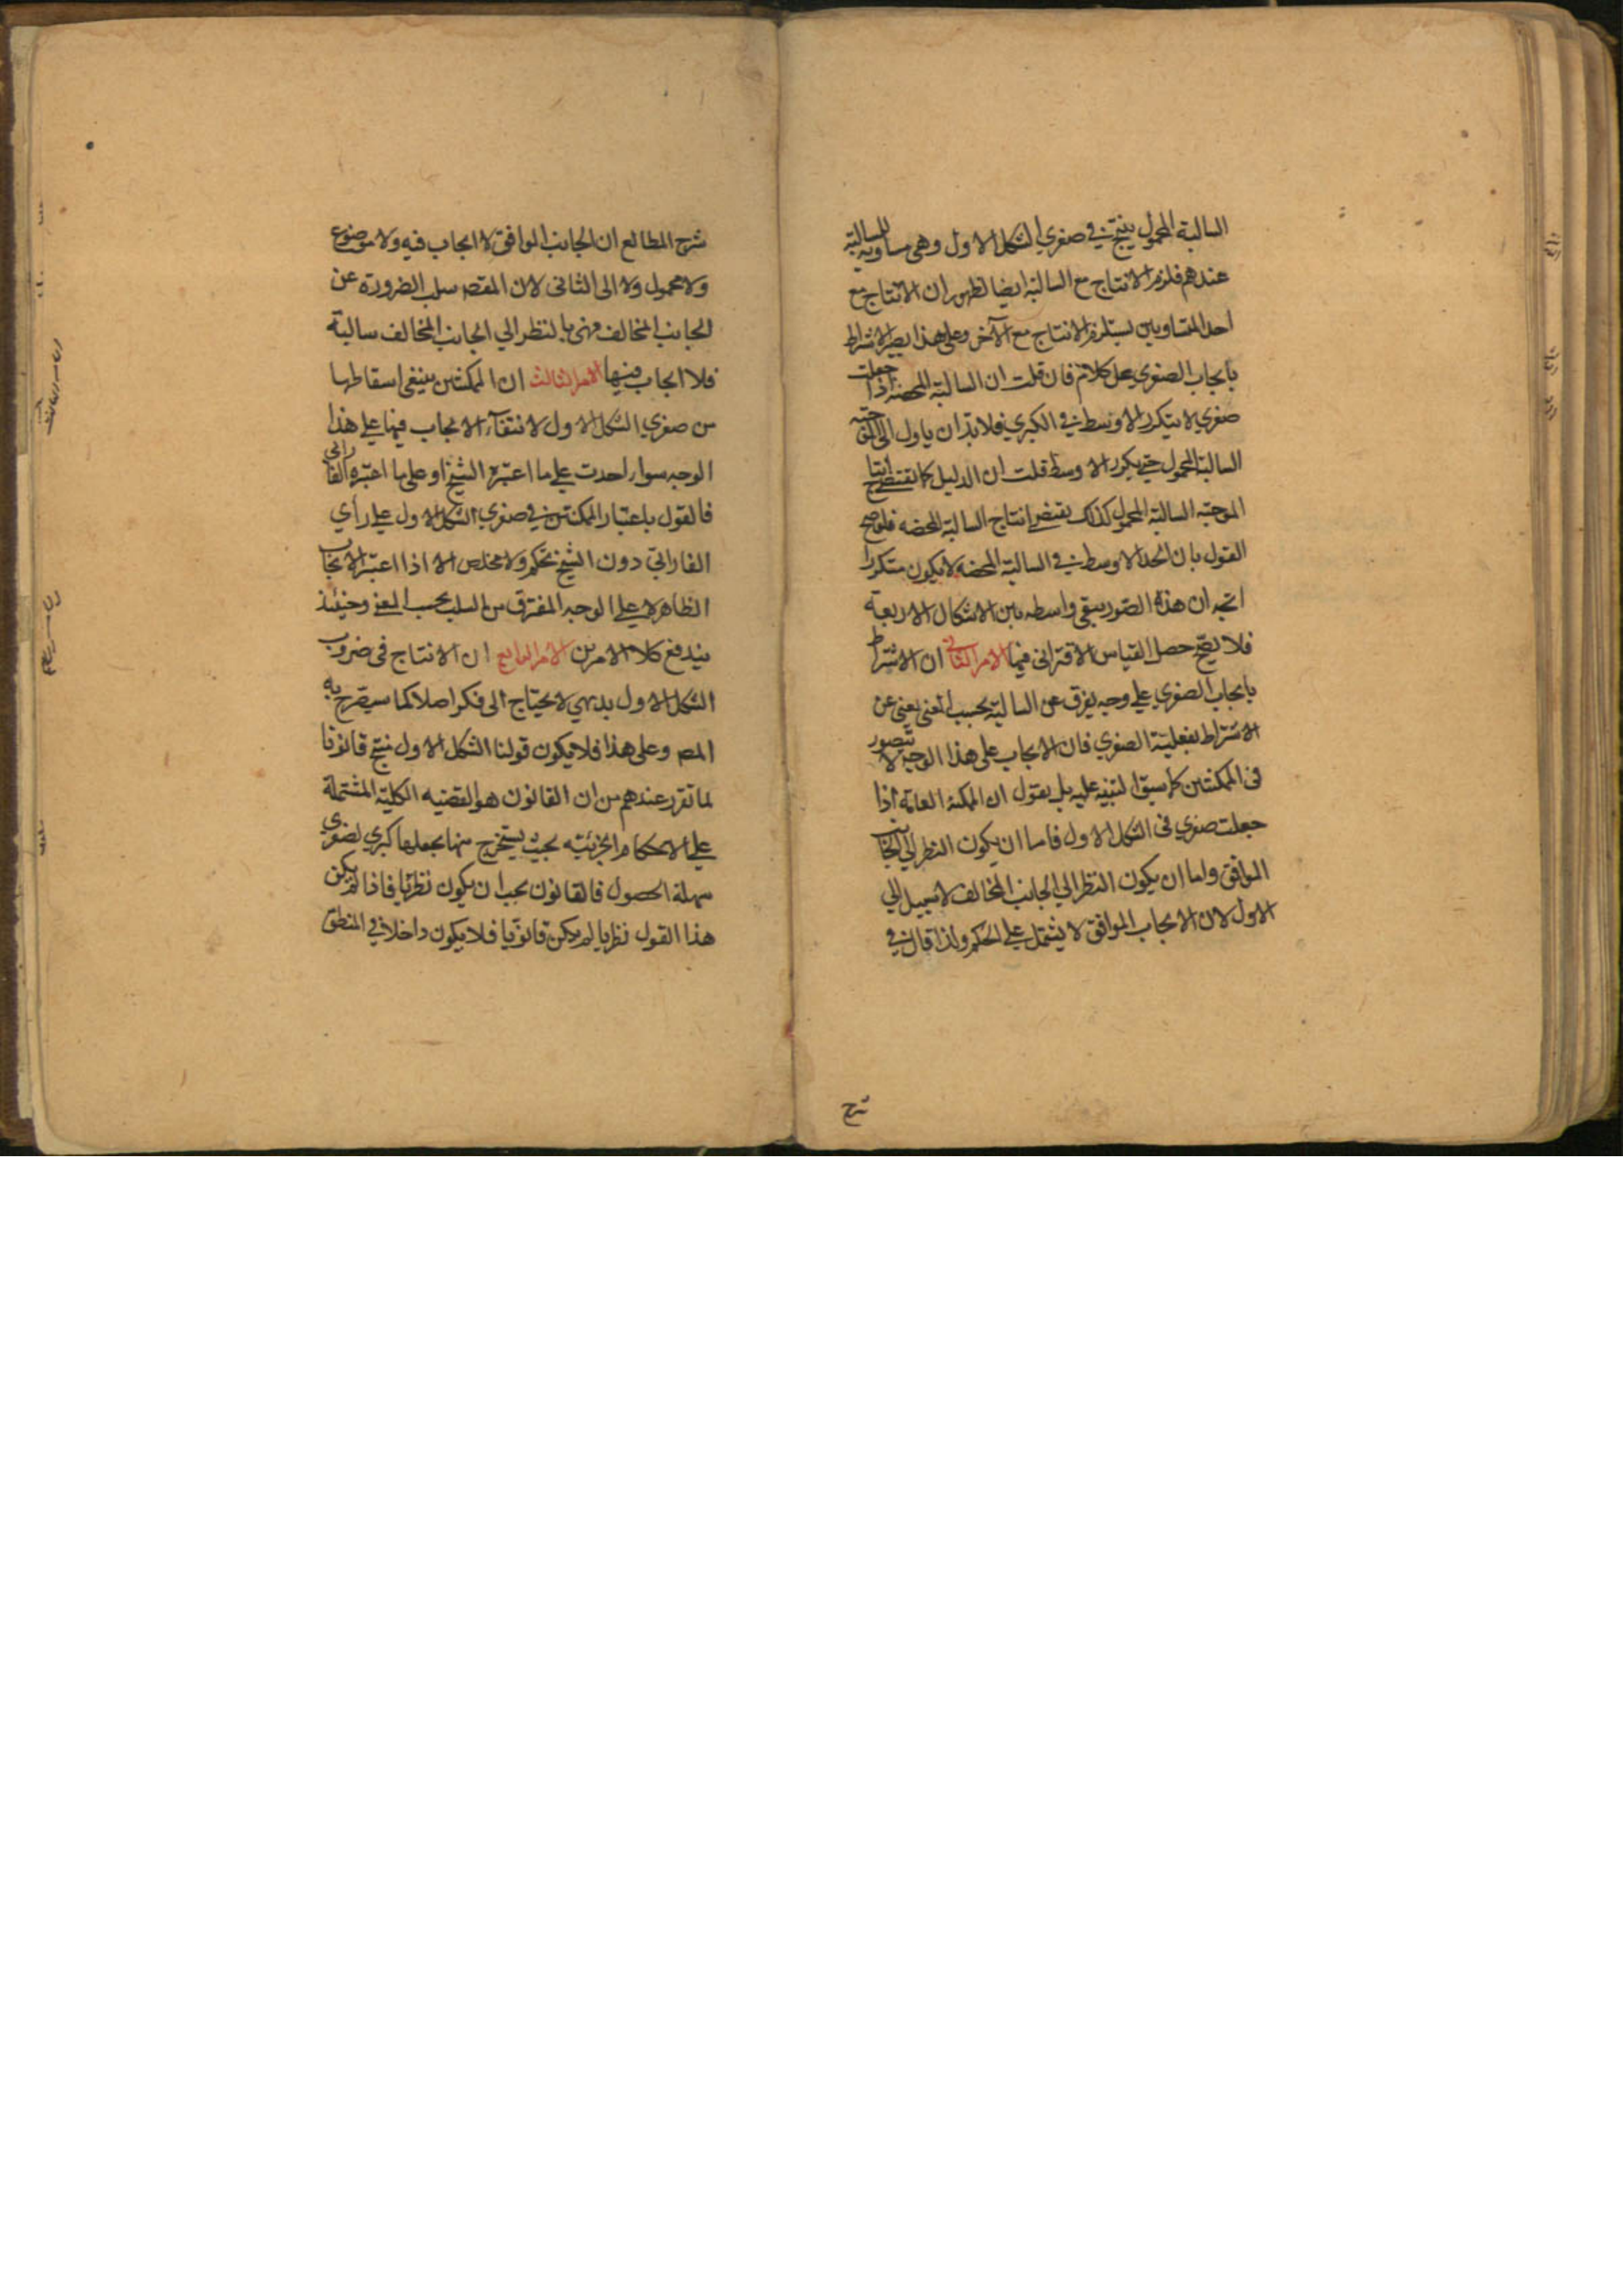 السالبة المحمول ينتج في صغري الشكل الاول وهي مساوية للسالبة
عندهم فلزم الانتاج مع السالبة ايضا لظهور ان الانتاج مع
احد المتساويين يستلزم الانتاج مع الآخر وعلى هذا يصير الاشتراط
بايجاب الصغري على كلامهم فان قلت ان السالبة المحضه اذا جعلت
صغري لا يتكرر الاوسط في الكبري فلا بد ان ياول الى الموجبه
السالبة المحمول حتي يكرر الاوسط قلت ان الدليل كما يقتضي انتاج
الموجبه السالبة المحمول كذلك يقتضي انتاج السالبة المحضه فلو صح
القول بان الحد الاوسط في السالبة المحضه لا يكون متكررا
اتجه ان هذه الصور يبقي واسطه بين الاشكال الاربعة
فلا يصح حصر القياس الاقتراني فيها الامر الثاني ان الاشتراط
بايجاب الصغري على وجه يفرق عن السالبة بحسب المعنى يغني عن
الاشتراط بفعلية الصغري فان الايجاب على هذا الوجه لا يتصور
في الممكنتين كما سبق التنبيه عليه بل يقول ان الممكنة العامة اذا
جعلت صغري في الشكل الاول فاما ان يكون النظر الي الجانب
الموافق واما ان يكون النظر الي الجانب المخالف لا سبيل الي
الاول لان الايجاب الموافق لا يشتمل على الحكم ولذا قال في
شرح
شرح المطالع ان الجانب الموافق لا ايجاب فيه ولا موضوع
ولا محمول ولا الى الثاني لان المقصد سلب الضرورة عن
الجانب المخالف فهي بالنظر الي الجانب المخالف سالبة
فلا ايجاب فيها الامر الثالث ان الممكنتين ينبغي اسقاطها
من صغري الشكل الاول لانتفاء الايجاب فيها على هذا
الوجه سواء احدت على ما اعتبره الشيخ او على ما اعتبره الفارابي
فالقول باعتبار الممكنتين في صغري الشكل الاول على رأي
الفارابي دون الشيخ تحكم ولا مخلص الا اذا اعتبر الايجاب
الظاهر لا على الوجه المفترق من السلب بحسب المعنى وحينئذ
يندفع كلا الامرين الامر الرابع ان الانتاج في ضروب
الشكل الاول بديهي لا يحتاج الى فكر اصلا كما سيصرح به
المصه وعلى هذا فلا يكون قولنا الشكل الاول منتج قانونا
لما تقرر عندهم من ان القانون هو القضيه الكلية المشتملة
على الاحكام الجزئيه بحيث يستخرج منها بجعلها كبري لصغري
سهلة الحصول فالقانون يجب ان يكون نظريا فاذا لم يكن
هذا القول نظريا لم يكن قانونيا فلا يكون داخلا في المنطق